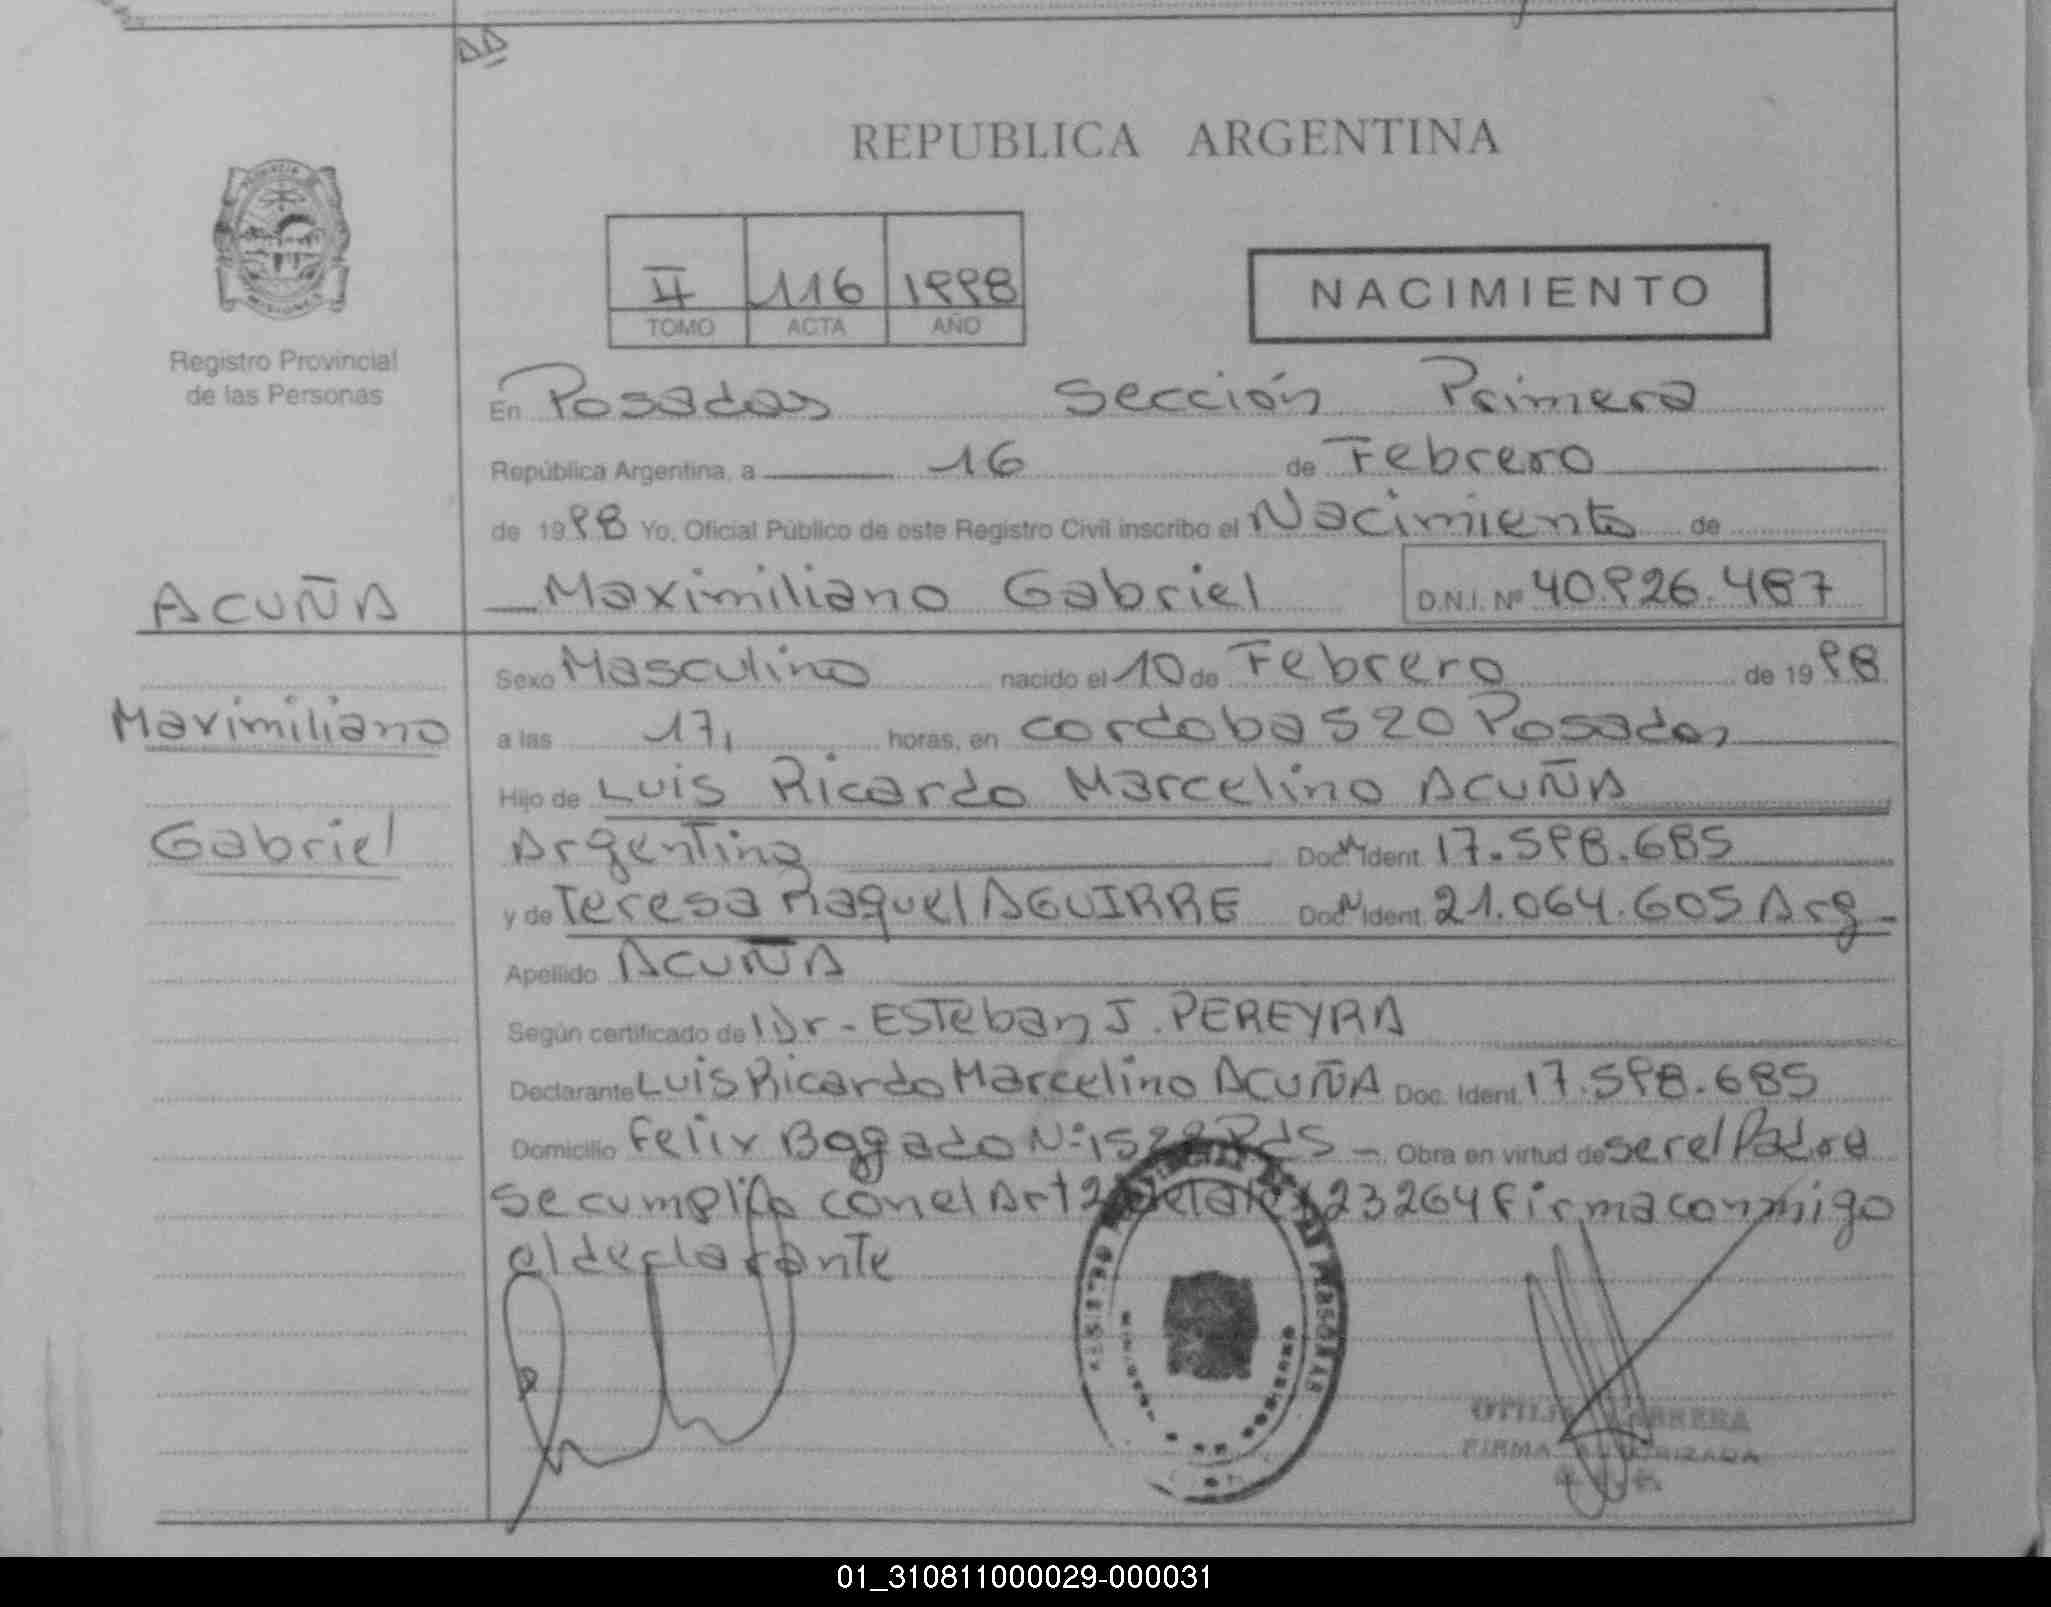 REPUBLICA ARGENTINA
II 116 1998
TOMO ACTA AÑO
NACIMIENTO
Registro Provincial
de las Personas
En Posadas Sección Primera
República Argentina, a 16 de Febrero
de 1998 Yo, Oficial Público de este Registro Civil inscribo el Nacimiento de
ACUÑA
Maximiliano Gabriel D.N.I. Nº 40.926.487
Sexo Masculino nacido el 10 de Febrero de 1998
Maximiliano
a las 17, horas, en cordoba 520 Posadas
Hijo de Luis Ricardo Marcelino ACUÑA
Gabriel
Argentino Doc. Ident. 17.598.685
y de Teresa Raquel AGUIRRE Doc. Ident. 21.064.605 Arg
Apellido ACUÑA
Según certificado de Dr. ESTeban J. PEREYRA
Declarante Luis Ricardo Marcelino ACUÑA Doc. Ident. 17.598.685
Domicilio Felix Bogado Nº Pds Obra en virtud de ser el Padre
se cumplio con el Art 23264 firma conmigo
el declarante
OTILIA CABRERA
FIRMA AUTORIZADA
01_310811000029-000031